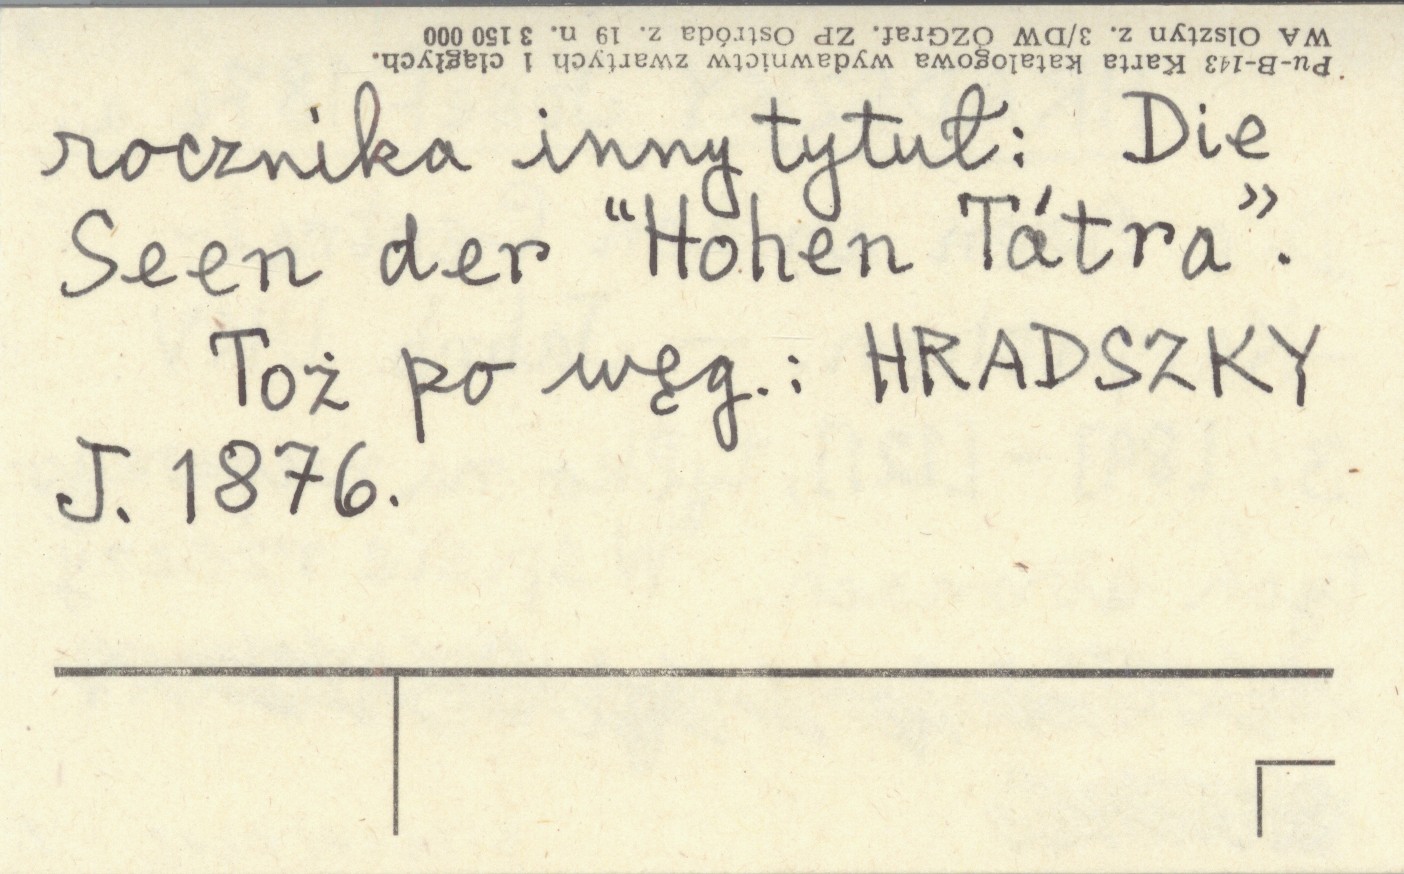 Pu-B-143 Karta katalogowa wydawnictw zwartych i ciągłych.
WA Olsztyn z. 3/DW OZGraf. ZP Ostróda z. 19 n. 3 150 000
rocznika inny tytuł: Die
Seen der "Hohen Tátra".
Toż po węg.: HRADSZKY
J. 1876.